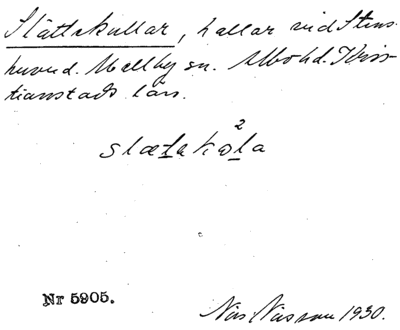 Slättakullar, hallar vid Stens-
huvud. Mellby sn. Albo hd. Kris-
tianstads län.
slætakωla
2
Nr 5905.
Nils Nilsson 1930.